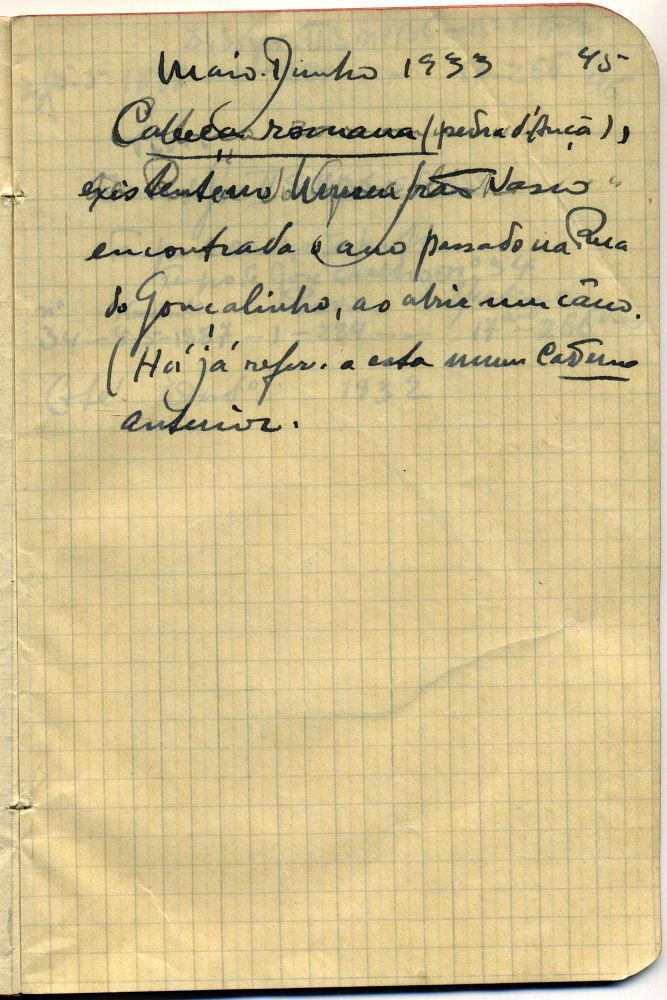 Maio-Junho 1933 45
Cabeça romana (pedra d'Ançã),
existente no Museu Grão Vasco
encontrada o ano passado na Rua
do Gonçalinho, ao abrir um cano.
(Há já refer. a esta num Caderno
anterior.